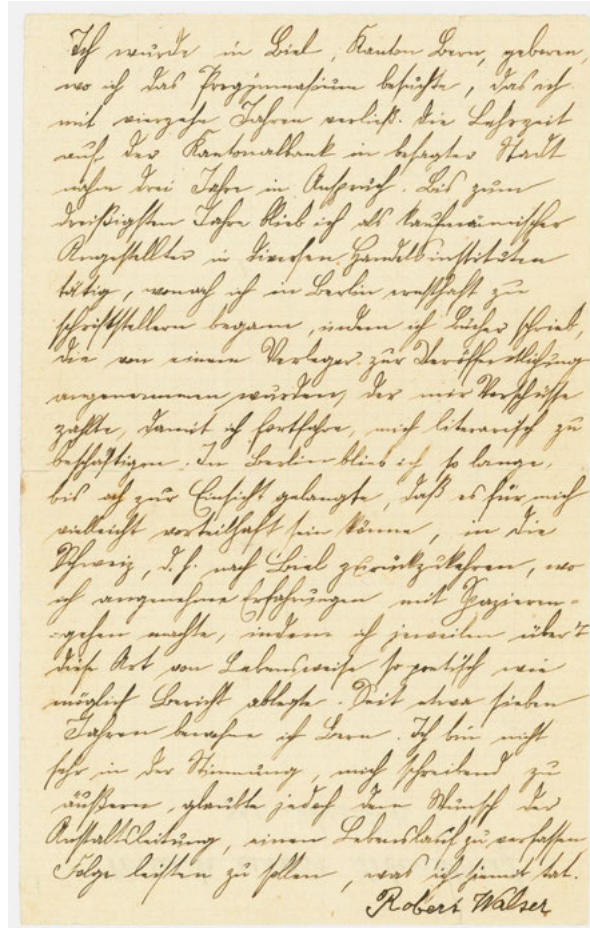 Ich wurde in Biel, Kanton Bern, geboren,
wo ich das Progymnasium besuchte, das ich
mit vierzehn Jahren verließ. Die Lehrzeit
auf der Kantonalbank in besagter Stadt
nahm drei Jahre in Anspruch. Bis zum
dreißigsten Jahre blieb ich als kaufmännischer
Angestellter in diversen Handelsinstituten
tätig, wonach ich in Berlin ernsthaft zu
schriftstellern begann, indem ich Bücher schrieb,
die von einem Verleger zur Veröffentlichung
angenommen wurden, der mir Vorschüsse
zahlte, damit ich fortfahre, mich literarisch zu
beschäftigen. In Berlin blieb ich so lange,
bis ich zur Einsicht gelangte, daß es für mich
vielleicht vorteilhaft sein könne, in die
Schweiz, d. h. nach Biel zurückzukehren, wo
ich angenehme Erfahrungen mit Spazieren-
-gehen machte, indem ich jeweilen über
diese Art von Lebensweise so poetisch wie
möglich Bericht ablegte. Seit etwa sieben
Jahren bewohne ich Bern. Ich bin nicht
sehr in der Stimmung, mich schreibend zu
äußern, glaubte jedoch dem Wunsch der
Anstaltsleitung, einen Lebenslauf zu verfassen
Folge leisten zu sollen, was ich hiemit tat.
Robert Walser